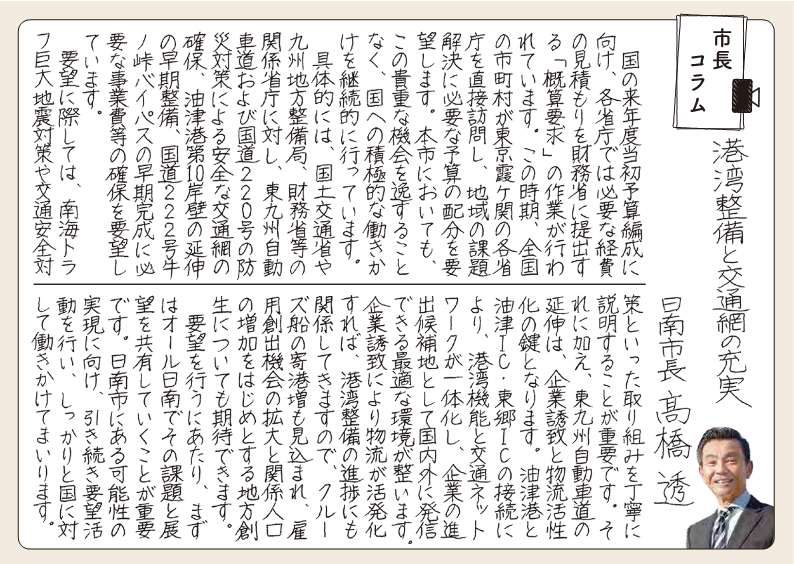 市長
コラム
港湾整備と交通網の充実
日南市長 髙橋 透
国の来年度当初予算編成に
向け、各省庁では必要な経費
の見積もりを財務省に提出す
る「概算要求」の作業が行わ
れています。この時期、全国
の市町村が東京霞ケ関の各省
庁を直接訪問し、地域の課題
解決に必要な予算の配分を要
望します。本市においても、
この貴重な機会を逸すること
なく、国への積極的な働きか
けを継続的に行っています。
具体的には、国土交通省や
九州地方整備局、財務省等の
関係省庁に対し、東九州自動
車道および国道220号の防
災対策による安全な交通網の
確保、油津港第10岸壁の延伸
の早期整備、国道222号牛
ノ峠バイパスの早期完成に必
要な事業費等の確保を要望し
ています。
要望に際しては、南海トラ
フ巨大地震対策や交通安全対
策といった取り組みを丁寧に
説明することが重要です。そ
れに加え、東九州自動車道の
延伸は、企業誘致と物流活性
化の鍵となります。油津港と
油津IC・東郷ICの接続に
より、港湾機能と交通ネット
ワークが一体化し、企業の進
出候補地として国内外に発信
できる最適な環境が整います。
企業誘致により物流が活発化
すれば、港湾整備の進捗にも
関係してきますので、クルー
ズ船の寄港増も見込まれ、雇
用創出機会の拡大と関係人口
の増加をはじめとする地方創
生についても期待できます。
要望を行うにあたり、まず
はオール日南でその課題と展
望を共有していくことが重要
です。日南市にある可能性の
実現に向け、引き続き要望活
動を行い、しっかりと国に対
して働きかけてまいります。